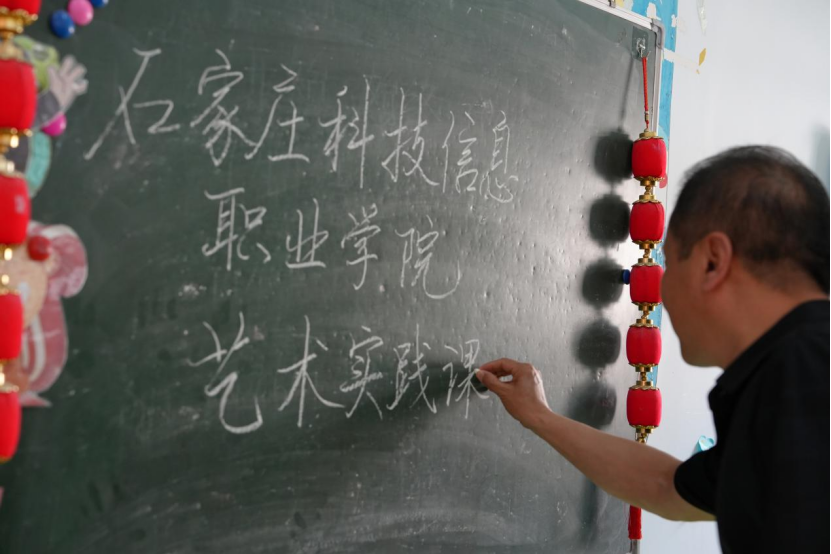 石家庄科技信息
职业学院
艺术实践课